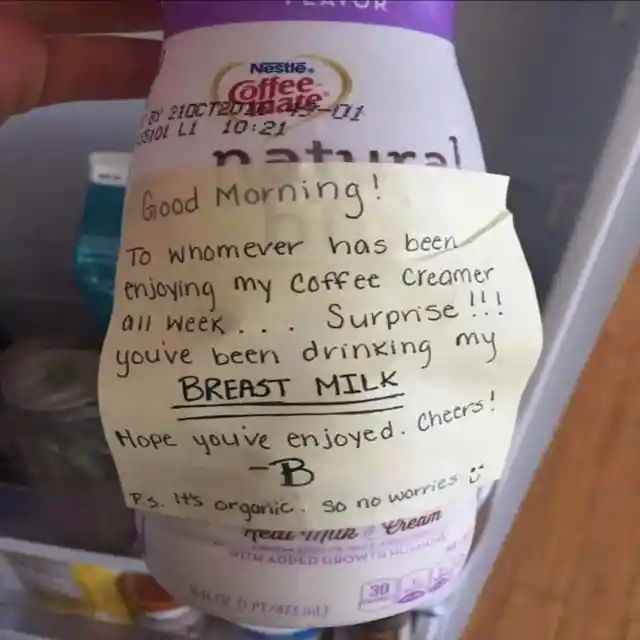 FLAVOR
Nestlé
Coffee-
mate
BY 21OCT201
L1 10:21
natural
Good Morning!
To whomever has been
enjoying my coffee creamer
all week.... Surprise!!!
you've been drinking my
BREAST MILK
Hope you've enjoyed. Cheers!
-B
P.s. It's organic. So no worries :)
Real Milk & Cream
WITH ADDED GROWTH HORMONE
(1 PT/473mL)
30